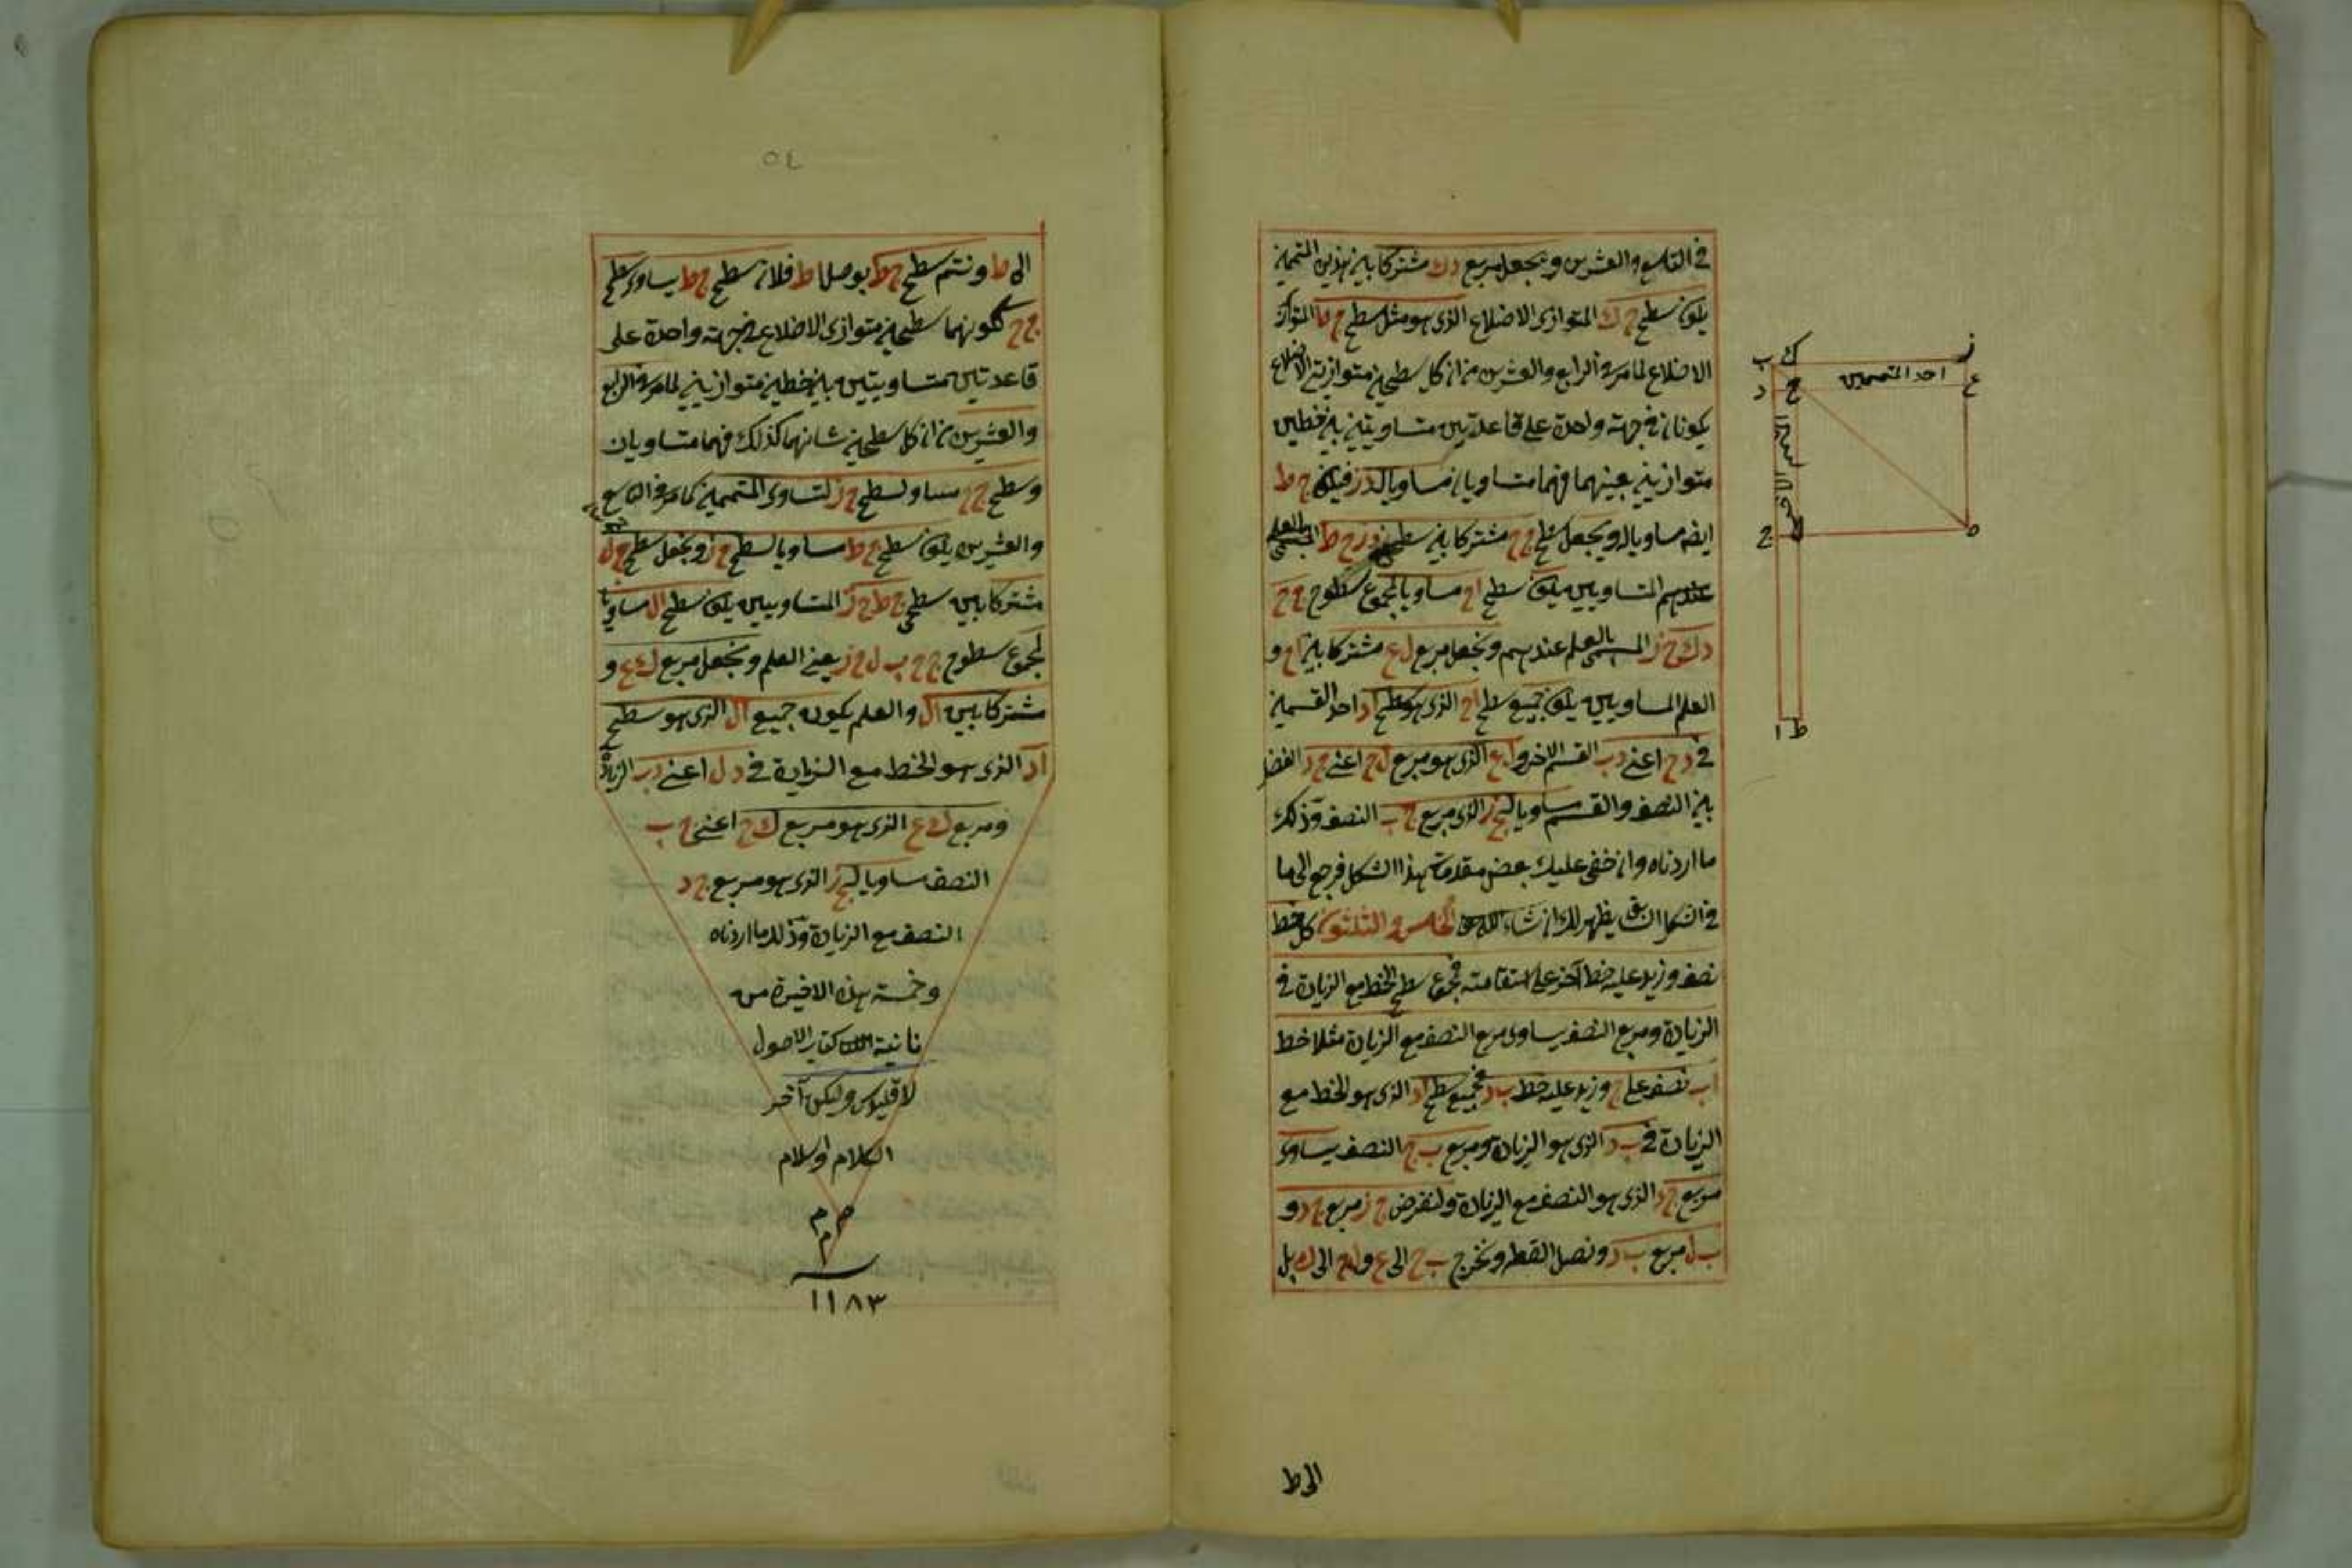 في التاسع والعشرين ونجعل مربع دك مشتركا بين هذين المتممين
يكون سطح ح ك المتوازى الاضلاع الذى هو مثل سطح ح ط المتوازى
الاضلاع لما مر في الرابع والعشرين من ان كل سطحين متوازيى الاضلاع
يكونان في جهة واحدة على قاعدتين متساويتين بين خطين
متوازيين بعينهما فهما متساويان مساويا لدز فيكون ج ط
ايضا مساويا له ونجعل سطح ج ح مشتركا بين سطحى دز ج ط
المتساويين يكون سطح اح مساويا لمجموع سطوح ج ح
دك ح ز المسمى بالعلم عندهم ونجعل مربع ل ع مشتركا بين اح و
العلم المساويين يكون جميع سطح اح الذى هو سطح اد احد القسمين
في دح اعنى دب القسم الاخر و ل ع الذى هو مربع ل ح اعنى ج د الفضل
بين النصف والقسم مساويا لج ز الذى مربع ج ب النصف وذلك
ما اردناه وان خفى عليك بعض مقدمات هذا الشكل فرجع الى ما
في الشكل السابق يظهر لك ان شاء الله الخامس والثلثون كل خط
نصف وزيد عليه خط آخر على استقامته فمجموع سطح الخط مع الزيادة في
الزيادة ومربع النصف يساوى مربع النصف مع الزيادة مثلا خط
اب نصف على ج وزيد عليه خط ب د فجميع سطح اد الذى هو الخط مع
الزيادة في ب د الذى هو الزيادة ومربع ب ج النصف يساوى
مربع ج د الذى هو النصف مع الزيادة ولنفرض ج ز مربع ج د و
ب ل مربع ب د ونصل القطر ونخرج ب ح الى ع و ل ح الى ك بل
الى ط
ز
ك
ب
احد المتممين
ع
ح
د
ه
ج
ط
ا
٥٤
الى ط ونتم سطح ج ط بوصل ا ط فلان سطح ج ط يساوى سطح
ج ح لكونهما سطحين متوازى الاضلاع في جهة واحدة على
قاعدتين متساويتين بين خطين متوازيين لما مر في الرابع
والعشرين من ان كل سطحين شانهما كذلك فهما متساويان
وسطح ج ح مساو لسطح ح ز لتساوى المتممين كما مر في التاسع
والعشرين يكون سطح ج ط مساويا لسطح ح ز ونجعل سطح ج ل
مشتركا بين سطحى ج ط ح ز المتساويين يكون سطح ال مساويا
لمجموع سطوح ج ح ب ل ح ز يعنى العلم ونجعل مربع ك ع
مشتركا بين ال والعلم يكون جميع ال الذى هو سطح
اد الذى هو الخط مع الزيادة في د ل اعنى دب الزيادة
ومربع ك ع الذى هو مربع ك ح اعنى ج ب
النصف مساويا لج ز الذى هو مربع ج د
النصف مع الزيادة وذلك ما اردناه
وخمسة هذه الاخيرة من
ثانية كتاب الاصول
لاقليدس وليكن آخر
الكلام والسلام
م م م
سنة
١١٨٣